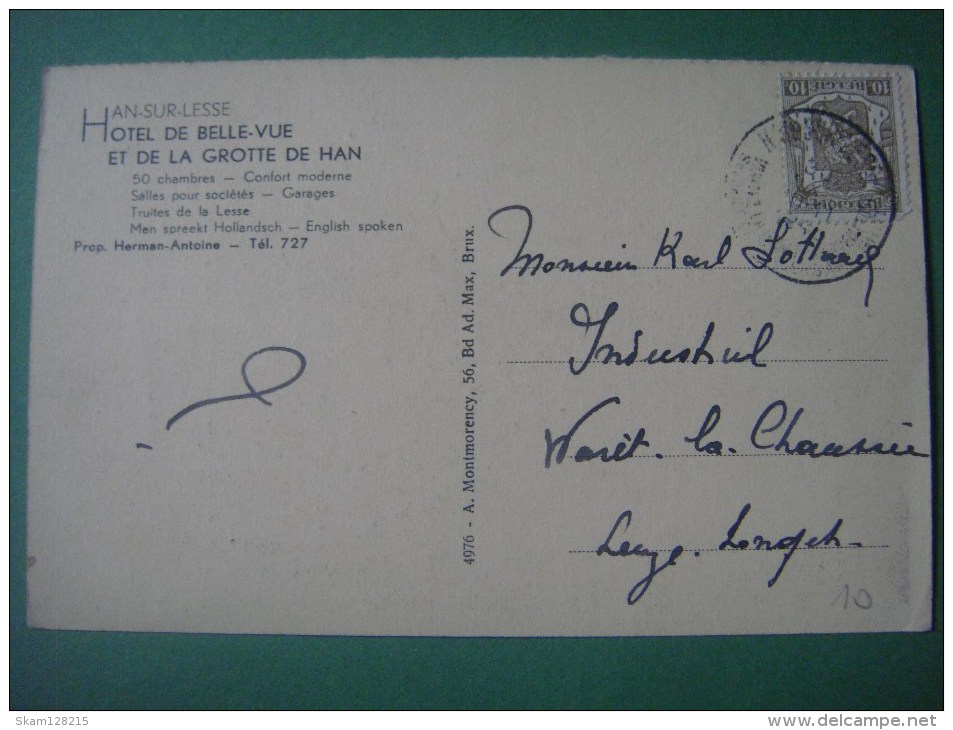 HAN-SUR-LESSE
HOTEL DE BELLE-VUE
ET DE LA GROTTE DE HAN
50 chambres — Confort moderne
Salles pour sociétés — Garages
Truites de la Lesse
Men spreekt Hollandsch — English spoken
Prop. Herman-Antoine — Tél. 727
4976 - A. Montmorency, 56, Bd Ad. Max, Brux.
10 BELGIE 10
BELGIQUE
Monsieur Karl
Industriel
Warêt-la-Chaussée
Leuze-Longch-
10
Skam128215
www.delcampe.net